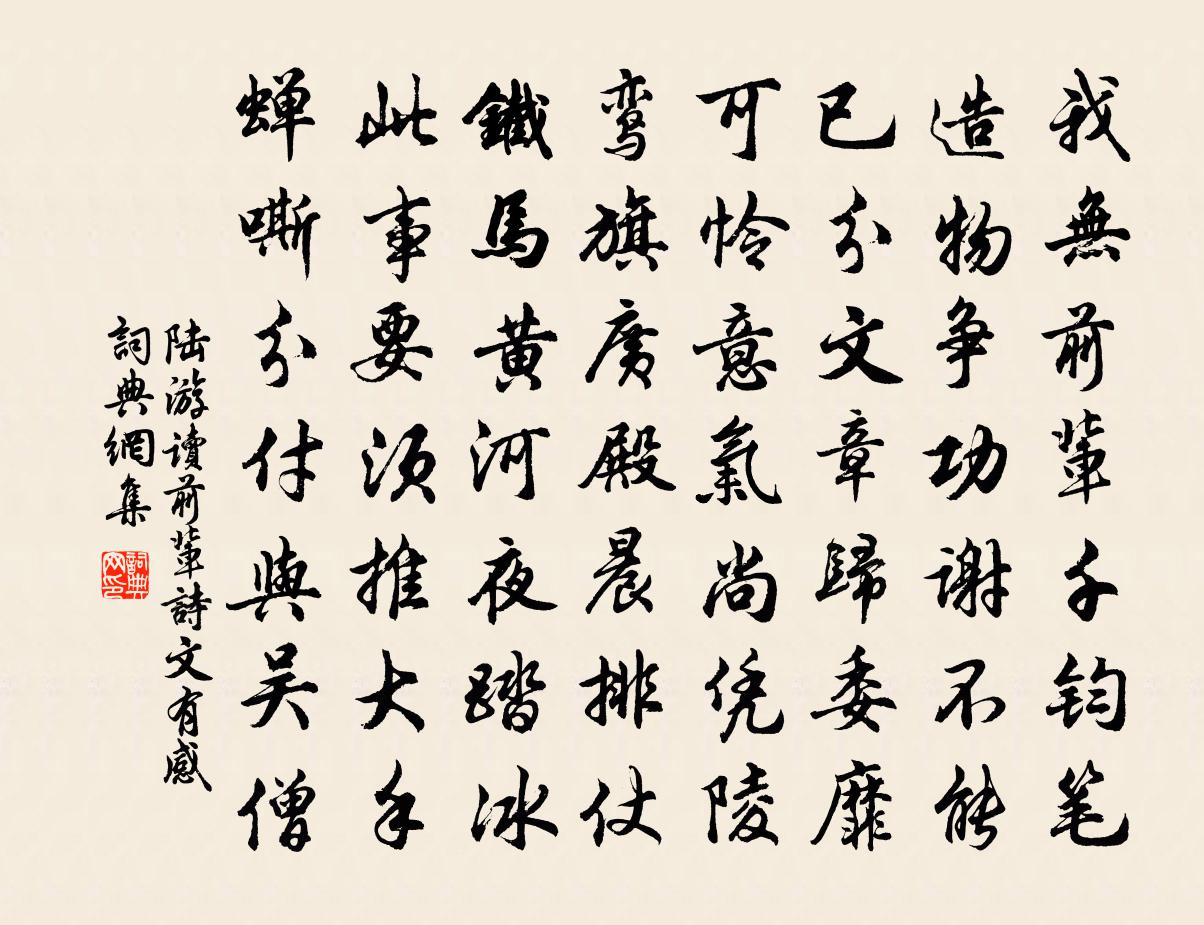 我無前輩千鈞笔
造物争功謝不能
已分文章歸委靡
可怜意氣尚凭陵
鸾旗廣殿晨排仗
鐵馬黄河夜踏冰
此事要須推大手
蝉嘶分付與吴僧
陆游讀前輩詩文有感
詞典網集
詞典网印